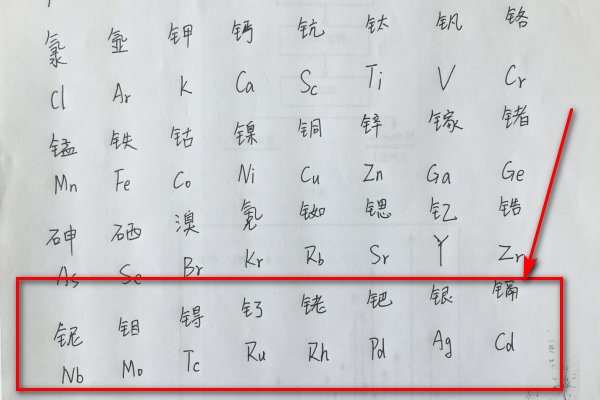 氯 氩 钾 钙 钪 钛 钒 铬
Cl Ar K Ca Sc Ti V Cr
锰 铁 钴 镍 铜 锌 镓 锗
Mn Fe Co Ni Cu Zn Ga Ge
砷 硒 溴 氪 铷 锶 钇 锆
As Se Br Kr Rb Sr Y Zr
铌 钼 锝 钌 铑 钯 银 镉
Nb Mo Tc Ru Rh Pd Ag Cd